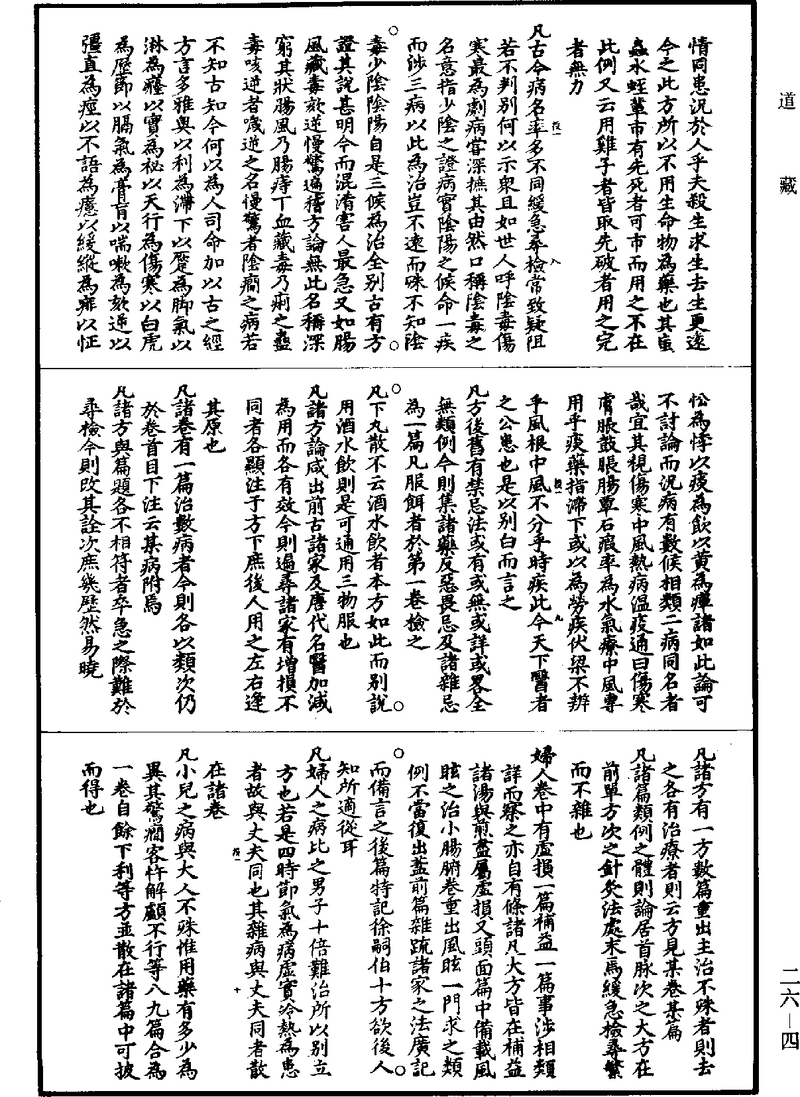 道藏
情同患況於人乎夫殺生求生去生更遠
今之此方所以不用生命物為藥也其䖟
蟲水蛭輩市有先死者可市而用之不在
此例又云用雞子者皆取先破者用之完
者無力
凡古今病名率多不同緩急尋檢常致疑阻
若不判別何以示衆且如世人呼陰毒傷
寒最為劇病嘗深摭其由然口稱陰毒之
名意指少陰之證病實陰陽之候命一疾
而涉三病以此為治豈不遠而殊不知陰
毒少陰陰陽自是三候為治全別古有方
證其說甚明今而混淆害人最急又如腸
風藏毒欬逆慢驚遍稽方論無此名稱深
窮其狀腸風乃腸痔下血藏毒乃痢之蠱
毒咳逆者噦逆之名慢驚者陰癇之病若
不知古知今何以為人司命加以古之經
方言多雅奧以利為滯下以蹷為脚氣以
淋為癃以實為祕以天行為傷寒以白虎
為歷節以膈氣為膏肓以喘嗽為欬逆以
彊直為痙以不語為癔以緩縱為痱以怔
忪為悸以痰為飲以黄為癉諸如此論可
不討論而況病有數候相類二病同名者
哉宜其視傷寒中風熱病温疫通曰傷寒
膚脹鼓脹腸覃石瘕率為水氣療中風專
用乎痰藥指滯下或以為勞疾伏梁不辨
乎風根中風不分乎時疾此今天下醫者
之公患也是以別白而言之
凡方後舊有禁忌法或有或無或詳或畧全
無類例今則集諸藥反惡畏忌及諸雜忌
為一篇凡服餌者於第一卷檢之
凡下丸散不云酒水飲者本方如此而別說
用酒水飲則是可通用三物服也
凡諸方論咸出前古諸家及唐代名醫加減
為用而各有效今則遍尋諸家有增損不
同者各顯注于方下庶後人用之左右逢
其原也
凡諸卷有一篇治數病者今則各以類次仍
於卷首目下注云某病附焉
凡諸方與篇題各不相符者卒急之際難於
尋檢今則改其詮次庶幾歷然易曉
凡諸方有一方數篇重出主治不殊者則去
之各有治療者則云方見某卷某篇
凡諸篇類例之體則論居首脉次之大方在
前單方次之針灸法處末焉緩急檢尋繁
而不雜也
婦人卷中有虛損一篇補益一篇事涉相類
詳而察之亦自有條諸凡大方皆在補益
諸湯與煎盡屬虛損又頭面篇中備載風
眩之治小腸腑卷重出風眩一門求之類
例不當復出蓋前篇雜疏諸家之法廣記
而備言之後篇特記徐嗣伯十方欲後人
知所適從耳
凡婦人之病比之男子十倍難治所以別立
方也若是四時節氣為病虛實冷熱為患
者故與丈夫同也其雜病與丈夫同者散
在諸卷
凡小兒之病與大人不殊惟用藥有多少為
異其驚癇客忤解顱不行等八九篇合為
一卷自餘下利等方並散在諸篇中可披
而得也
二六—四